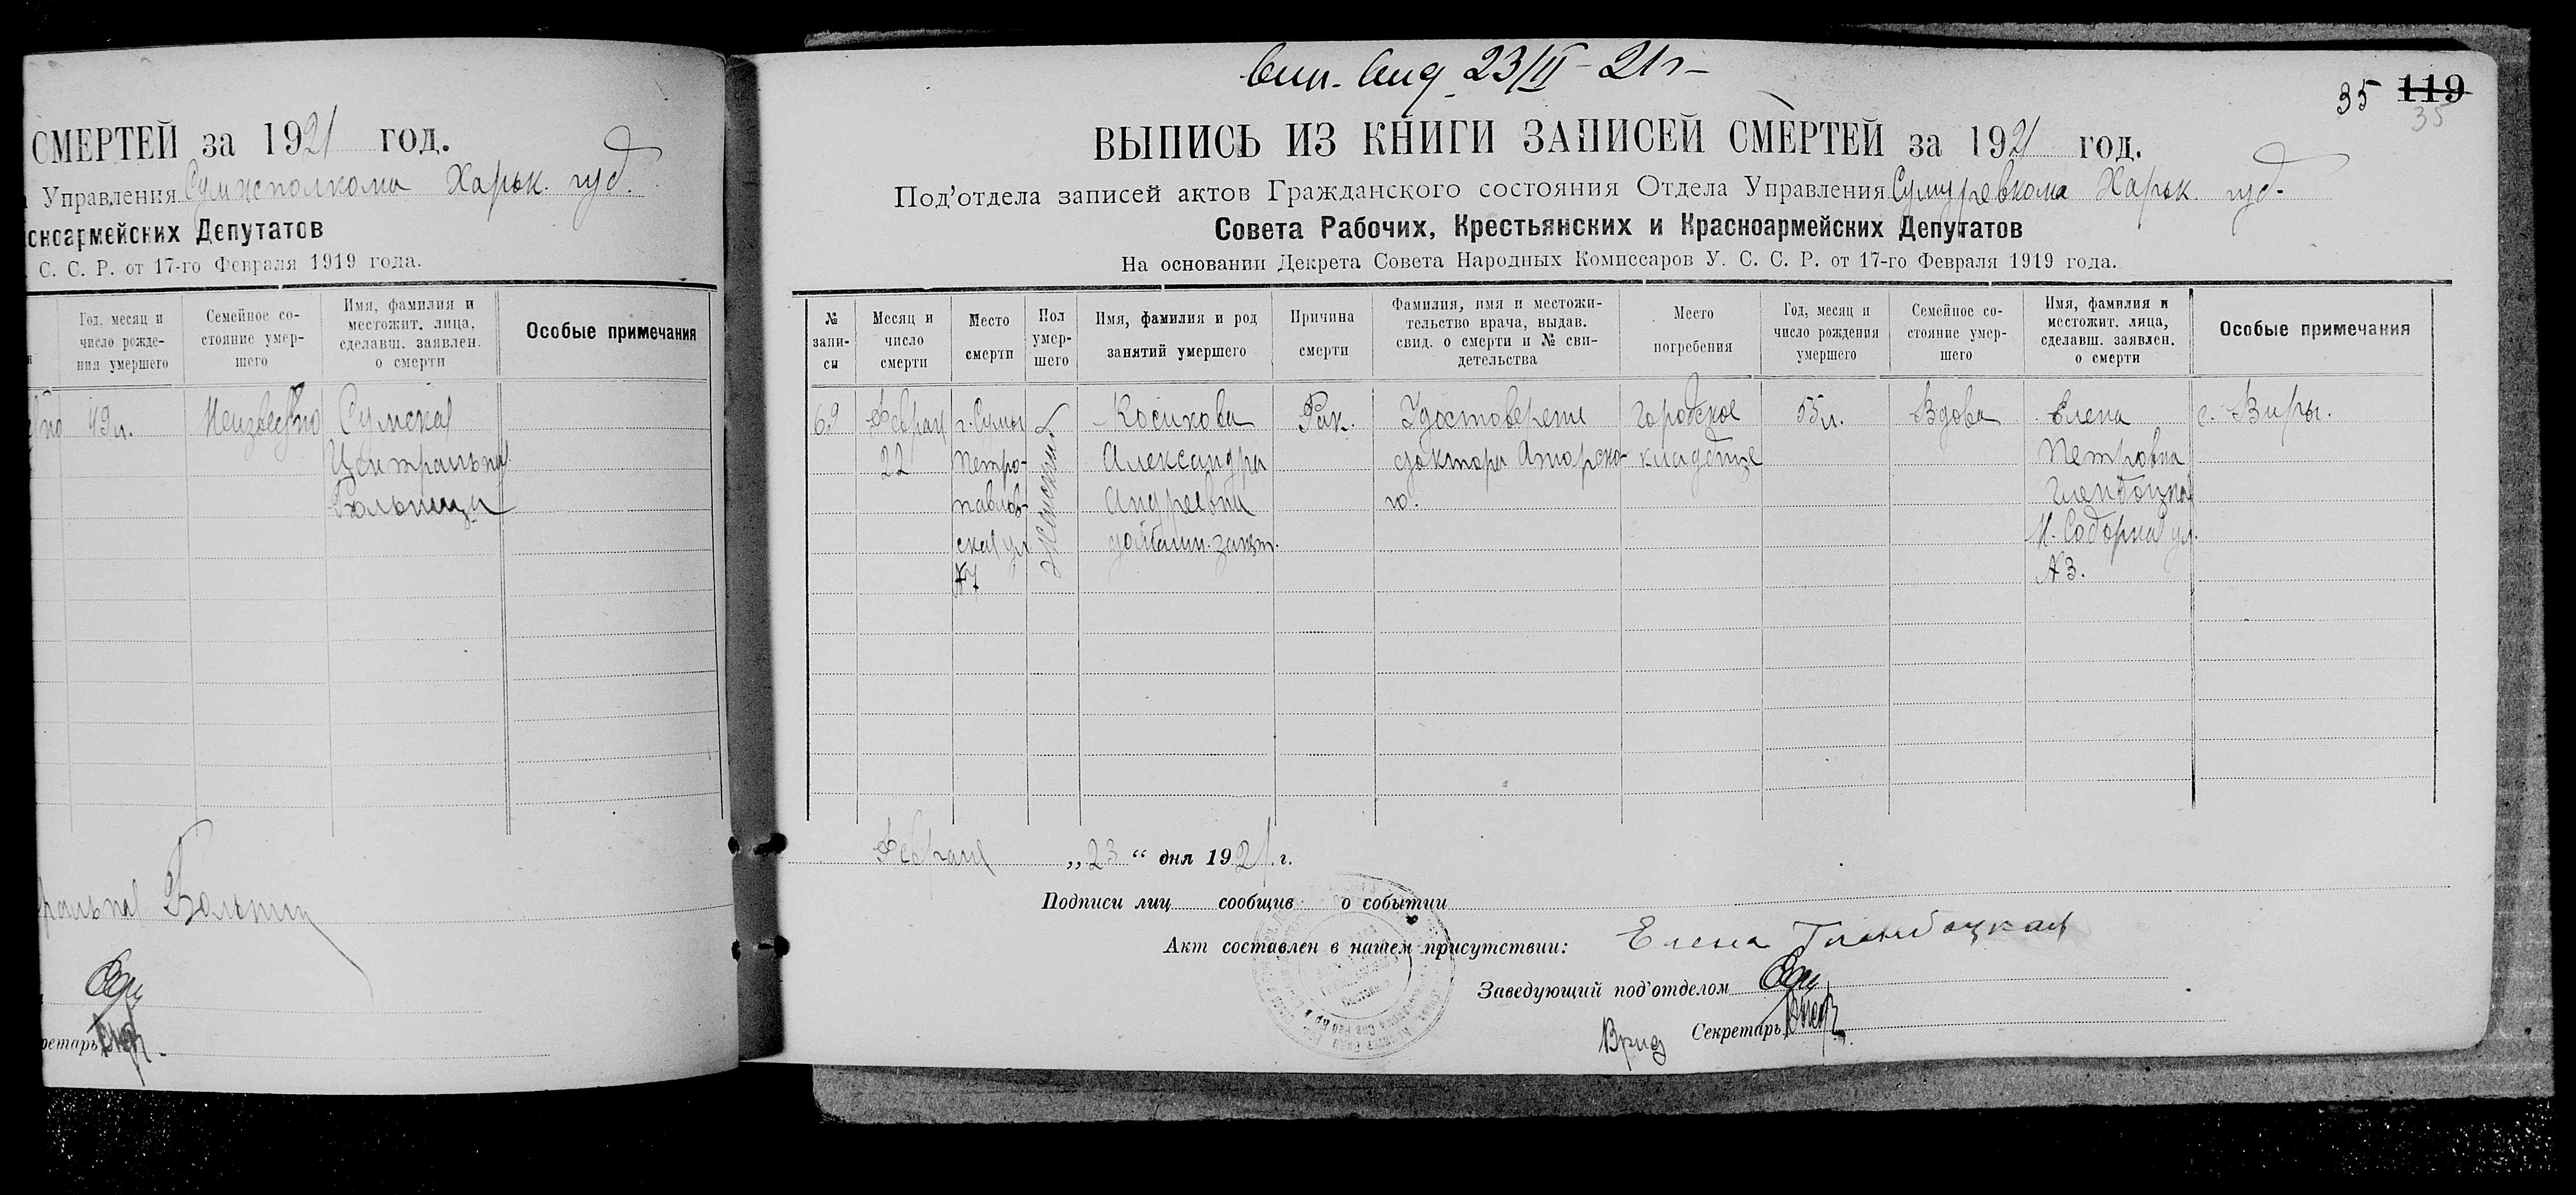 СМЕРТЕЙ за 1921 год.
Управления Сумисполкома Харьк. губ.
сноармейских Депутатов
С. С. Р. от 17-го Февраля 1919 года.
Год, месяц и число рожде-
ния умершего
Семейное со-
стояние умер-
шего
Имя, фамилия и
местожит. лица,
сделавш. заявлен.
о смерти
Особые примечания
49 л.
Неизвестно
Сумская
Центральная
Больница
ральная Больниц
ретарь
23/II - 21 г
35 119
35
ВЫПИСЬ ИЗ КНИГИ ЗАПИСЕЙ СМЕРТЕЙ за 1921 год.
Под'отдела записей актов Гражданского состояния Отдела Управления Сумуревкома Харьк. губ.
Совета Рабочих, Крестьянских и Красноармейских Депутатов
На основании Декрета Совета Народных Комиссаров У. С. С. Р. от 17-го Февраля 1919 года.
№
запи-
си
Месяц и
число
смерти
Место
смерти
Пол
умер-
шего
Имя, фамилия и род
занятий умершего
Причина
смерти
Фамилия, имя и местожи-
тельство врача, выдав.
свид. о смерти и № сви-
детельства
Место
погребения
Год, месяц и
число рождения
умершего
Семейное со-
стояние умер-
шего
Имя, фамилия и
местожит. лица,
сделавш. заявлен.
о смерти
Особые примечания
69
Феврал
22
г. Сумы
Петро-
павлов-
ская ул
№7
Женский
Косикова
Александра
Андреевна
домашн. занят.
Рак.
Удостоверение
доктора
го.
Городское
кладбище
55 л.
Вдова
Елена
Петровна
Глембоцкая
Н. Соборная ул.
№ 3.
с. Виры.
Февраля „23“ дня 1921 г.
Подписи лиц сообщив о событии
Акт составлен в нашем присутствии: Елена Глембоцкая
Заведующий под'отделом
Врид Секретарь